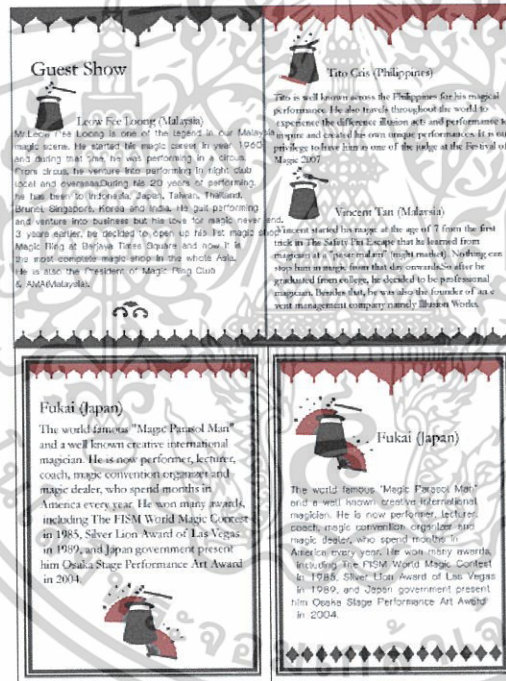 Guest Show
Leow Fee Loong (Malaysia)
Mr.Leow Fee Loong is one of the legend in our Malaysia
magic scene. He started his magic career in year 1960
and during that time, he was performing in a circus.
From circus, he venture into performing in night club
local and overseas.During his 20 years of performing,
he has been to Indonesia, Japan, Taiwan, Thailand,
Brunei, Singapore, Korea and India. He quit performing
and venture into business but his love for magic never end.
3 years earlier, he decided to open up his 1st magic shop
Magic Ring at Berjaya Times Square and now it is
the most complete magic shop in the whole Asia.
He is also the President of Magic Ring Club
& AMA(Malaysia).
Tito Cris (Philippines)
Tito is well known across the Philippines for his magical
performance. He also travels throughout the world to
experience the difference illusion acts and performance to
inspire and created his own unique performances. It is our
privilege to have him as one of the judge at the Festival of
Magic 2007
Vincent Tan (Malaysia)
Vincent started his magic at the age of 7 from the first
trick in The Safety Pin Escape that he learned from
magician at a "pasar malam" (night market). Nothing can
stop him in magic from that day onwards.So after he
graduated from college, he decided to be professional
magician. Besides that, he was also the founder of an e
vent management company namely Illusion Works.
Fukai (Japan)
The world famous "Magic Parasol Man"
and a well known creative international
magician. He is now performer, lecturer,
coach, magic convention organizer and
magic dealer, who spend months in
America every year. He won many awards,
including The FISM World Magic Contest
in 1985, Silver Lion Award of Las Vegas
in 1989, and Japan government present
him Osaka Stage Performance Art Award
in 2004.
Fukai (Japan)
The world famous "Magic Parasol Man"
and a well known creative international
magician. He is now performer, lecturer,
coach, magic convention organizer and
magic dealer, who spend months in
America every year. He won many awards,
including The FISM World Magic Contest
in 1985, Silver Lion Award of Las Vegas
in 1989, and Japan government present
him Osaka Stage Performance Art Award
in 2004.